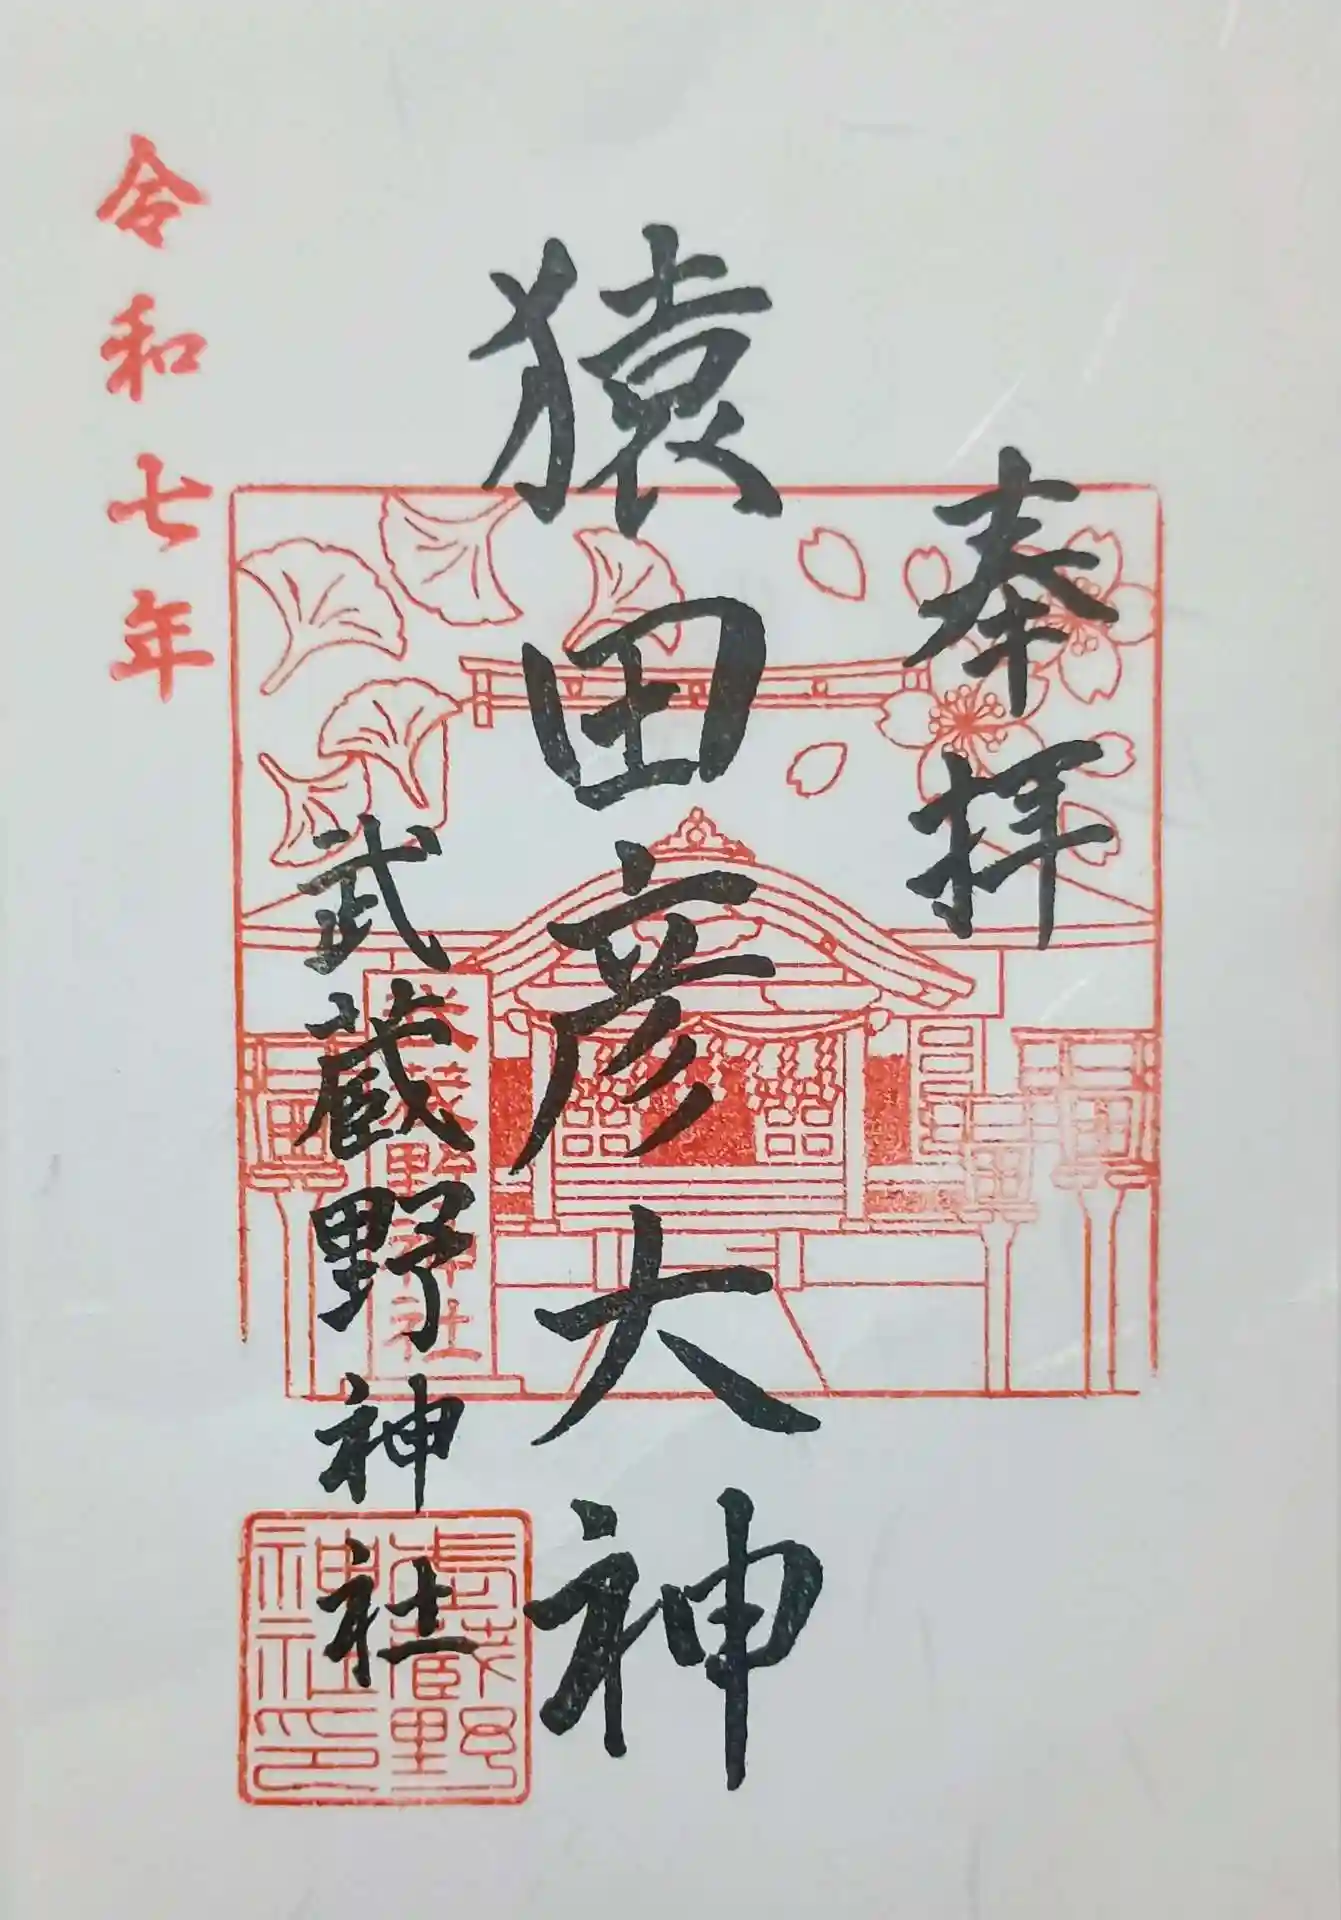 奉拝
猿田彦大神
武蔵野神社
武蔵野神社
武蔵野
神社印
令和七年